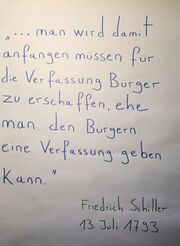 „... man wird damit
anfangen müssen für
die Verfassung Bürger
zu erschaffen, ehe
man den Bürgern
eine Verfassung geben
kann."
Friedrich Schiller
13. Juli 1793